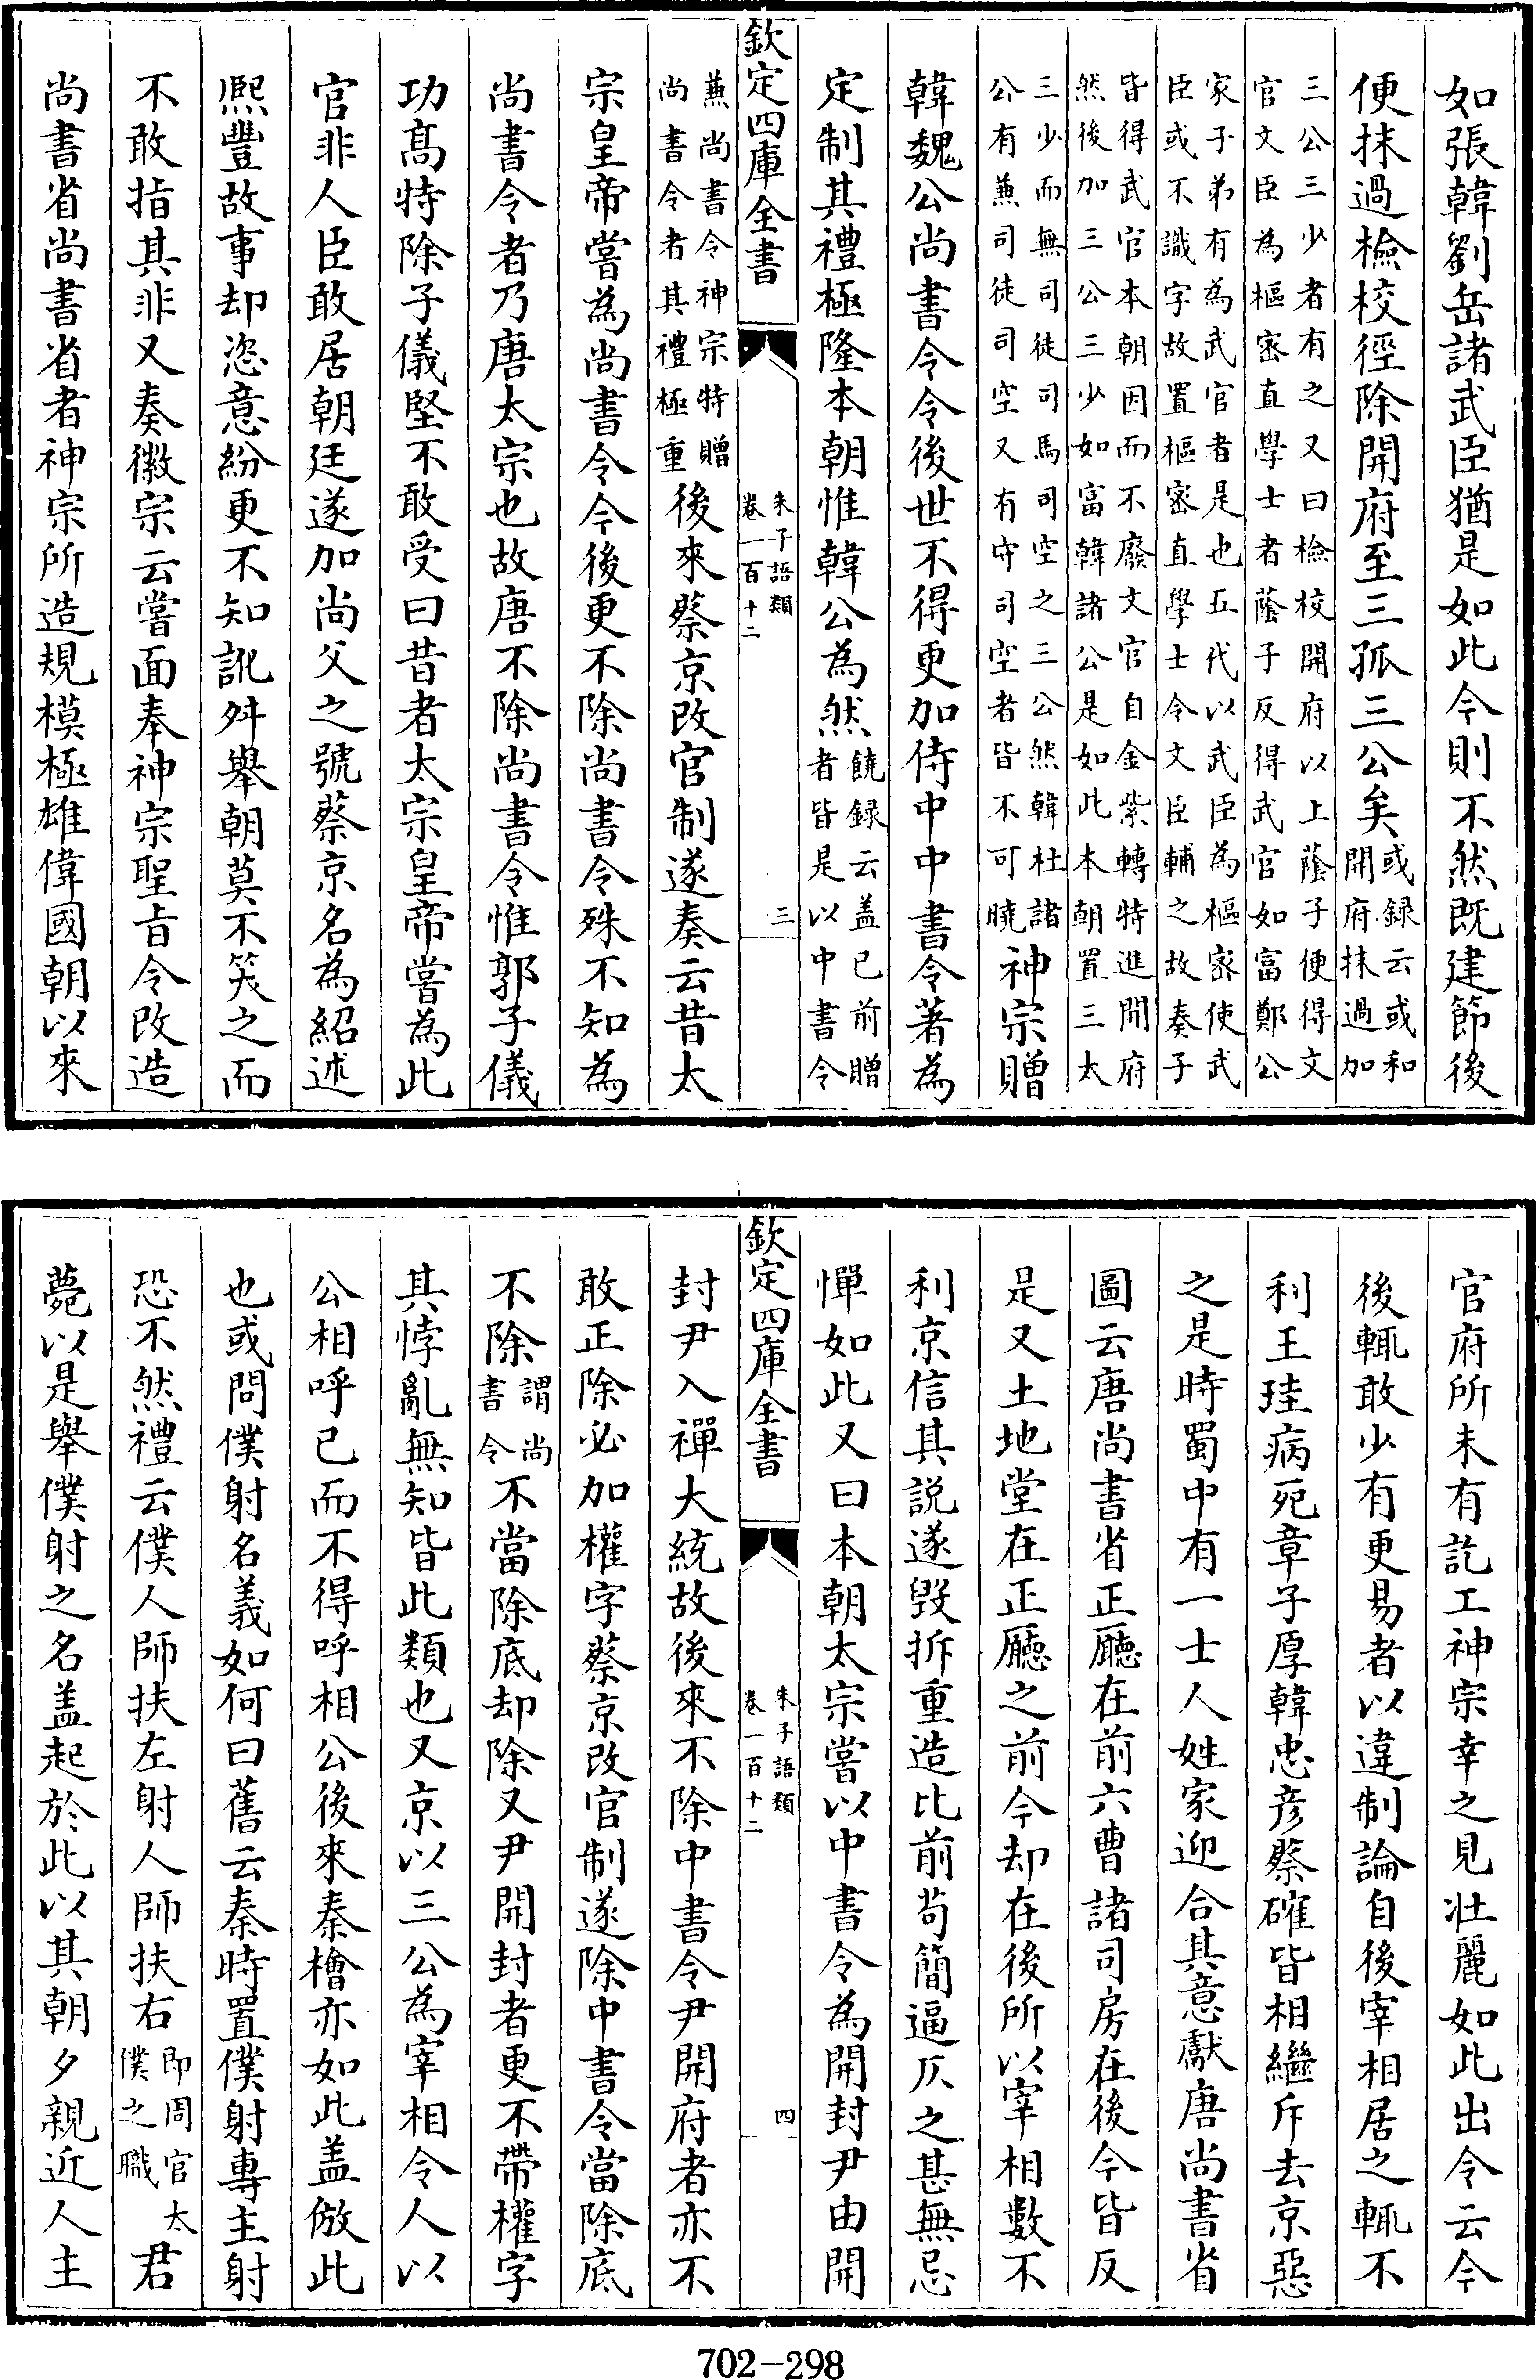 如張韓劉岳諸武臣猶是如此今則不然既建節後
便抹過檢校徑除開府至三孤三公矣或録云或和開府抹過加
三公三少者有之又曰檢校開府以上䕃子便得文官文臣為樞宻直學士者䕃子反得武官如富鄭公
家子弟有為武官者是也五代以武臣為樞宻使武臣或不識字故置樞宻直學士令文臣輔之故奏子
皆得武官本朝因而不廢文官自金紫轉特進開府然後加三公三少如富韓諸公是如此本朝置三太
三少而無司徒司馬司空之三公然韓杜諸公有兼司徒司空又有守司空者皆不可曉神宗贈
韓魏公尚書令令後世不得更加侍中中書令著為
定制其禮極隆本朝惟韓公為然饒録云盖已前贈者皆是以中書令
欽定四庫全書
朱子語類
卷一百十二
三
兼尚書令神宗特贈尚書令者其禮極重後來蔡京改官制遂奏云昔太
宗皇帝嘗為尚書令今後更不除尚書令殊不知為
尚書令者乃唐太宗也故唐不除尚書令惟郭子儀
功高特除子儀堅不敢受曰昔者太宗皇帝嘗為此
官非人臣敢居朝廷遂加尚父之號蔡京名為紹述
熈豐故事却恣意紛更不知訛舛舉朝莫不笑之而
不敢指其非又奏徽宗云嘗面奉神宗聖㫖令改造
尚書省尚書省者神宗所造規模極雄偉國朝以來
官府所未有訖工神宗幸之見壯麗如此出令云今
後輒敢少有更易者以違制論自後宰相居之輒不
利王珪病死章子厚韓忠彥蔡確皆相繼斥去京惡
之是時蜀中有一士人姓家迎合其意獻唐尚書省
圖云唐尚書省正廳在前六曹諸司房在後今皆反
是又土地堂在正廳之前今却在後所以宰相數不
利京信其説遂毀拆重造比前茍簡逼仄之甚無忌
憚如此又曰本朝太宗嘗以中書令為開封尹由開
欽定四庫全書
朱子語類
卷一百十二
四
封尹入禪大統故後來不除中書令尹開府者亦不
敢正除必加權字蔡京改官制遂除中書令當除底
不除謂尚書令不當除底却除又尹開封者更不帶權字
其悖亂無知皆此類也又京以三公為宰相令人以
公相呼已而不得呼相公後來秦檜亦如此盖倣此
也或問僕射名義如何曰舊云秦時置僕射專主射
恐不然禮云僕人師扶左射人師扶右即周官太僕之職君
薨以是舉僕射之名盖起於此以其朝夕親近人主
702-298